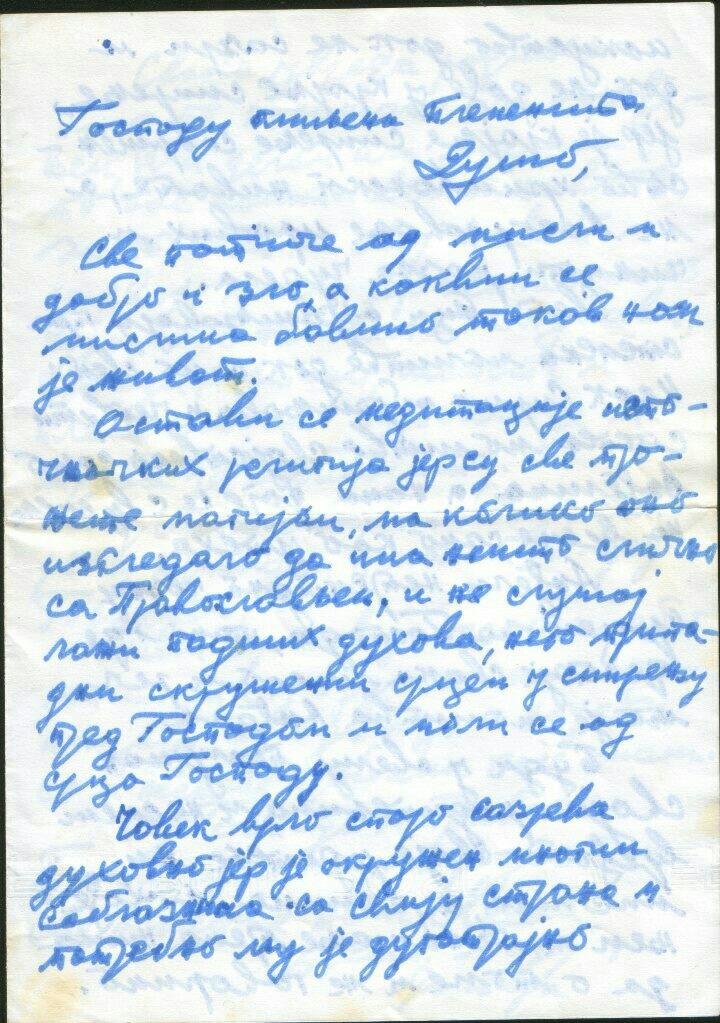 Господу миљена племенита
Душо,
Све потиче од мисли и
добро и зло, а каквим се
мислима бавимо таков нам
је живот.
Остави се медитације исто-
чњачких религија јер су све про-
жете магијом, ма колико оно
изгледало да има нешто слично
са Православљем, и не слушај
лажи падших духова, него припа-
дни скрушеним срцем у смирењу
пред Господом и моли се од
срца Господу.
Човек врло споро сазрева
духовно јер је окружен многим
саблазнима са свију страна и
потребно му је дуготрајно